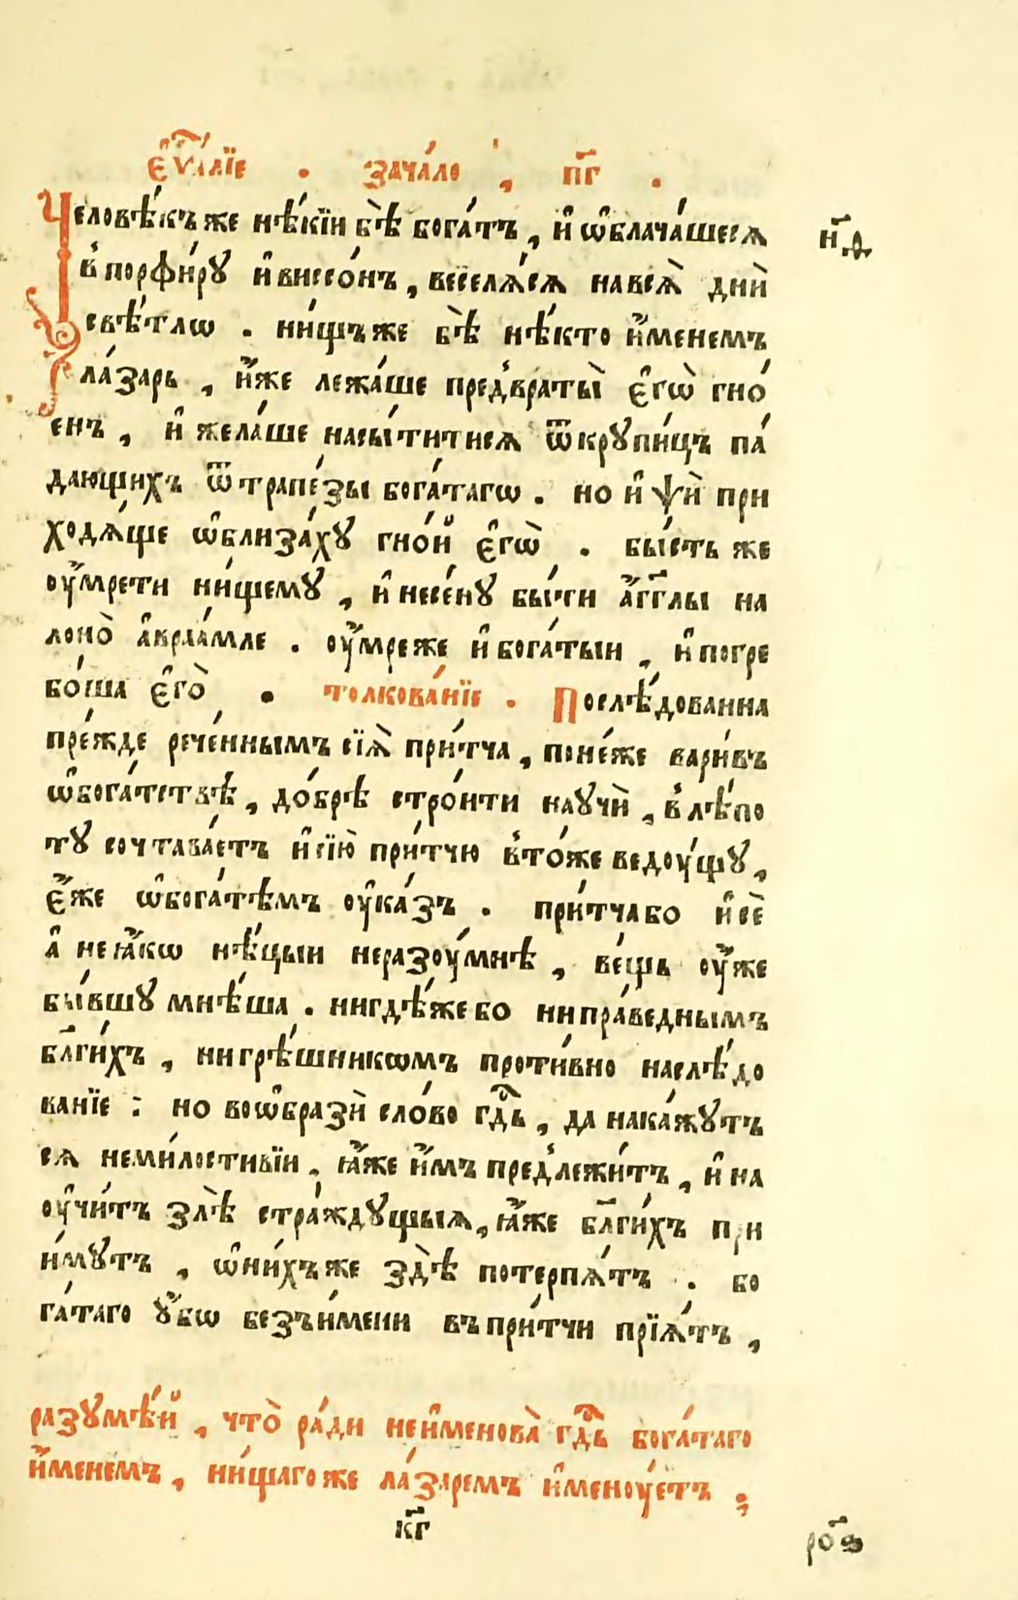 є҆ѵⷢ҇лїе . зача́ло , п҃г .
Человѣ́къ же нѣ́кїи бѣ̀ бога́тъ , и҆ ѡ҆блача́шеся
в̾ порфи́ру и҆ виссо́нъ , веселя́ся на вся̀ днѝ
свѣ́тлѡ . ни́щъ же бѣ̀ нѣ́кто и҆́менемъ
ла́зарь , и҆́же лежа́ше пред̾враты̀ є҆гѡ̀ гно́
енъ , и҆ жела́ше насы́титися ѿ крупи́цъ па́
дающихъ ѿ трапе́зы бога́тагѡ . но и҆ ѱѝ при
ходя́ще ѡ҆близа́хꙋ гно́й є҆гѡ̀ . бы́сть же
оу҆мре́ти ни́щемꙋ , и҆ несе́нꙋ бы́ти а҆́гг҃лы на
лоно̀ а҆враа́мле . оу҆́мре же и҆ бога́тыи , и҆ погре
бо́ша є҆го̀ . толкова́нїе . Послѣ́дованна
пре́жде рече́ннымъ сїя̀ при́тча , поне́же вари́въ
ѡ҆ бога́тствѣ , до́брѣ стро́ити научѝ , в̾ лѣ́по
тꙋ сочтава́етъ и҆ сїю̀ при́тчю в̾ то́же ведоу́щꙋ ,
є҆́же ѡ҆ бога́тѣмъ оу҆ка́зъ . при́тча бо и҆ сѐ
а҆ не ꙗ҆́кѡ нѣ́цыи неразоу́мнѣ , ве́щь оу҆́же
бы́вшꙋ мнѣ́ша . нигдѣ́же бо ни пра́веднымъ
бл҃ги́хъ , ни грѣ́шникѡмъ проти́вно наслѣ́до
ванїе : но воѡ҆бразѝ сло́во гдⷭ҇ь , да нака́жꙋтъ
ся неми́лостивїи , ꙗ҆́же и҆́мъ пред̾лежи́тъ , и҆ на
оу҆чи́тъ злѣ̀ стра́ждꙋщыя , ꙗ҆́же бл҃ги́хъ при
и́мꙋтъ , ѡ҆ ни́хъже здѣ̀ потерпя́тъ . бо
га́таго ᲂу҆́бѡ безъ и́мени въ при́тчи прїя́тъ ,
разꙋмѣ́й , что̀ ра́ди не и҆менова̀ гдⷭ҇ь бога́таго
и҆́менемъ , ни́щаго же ла́заремъ и҆меноу́етъ ;
к҃г